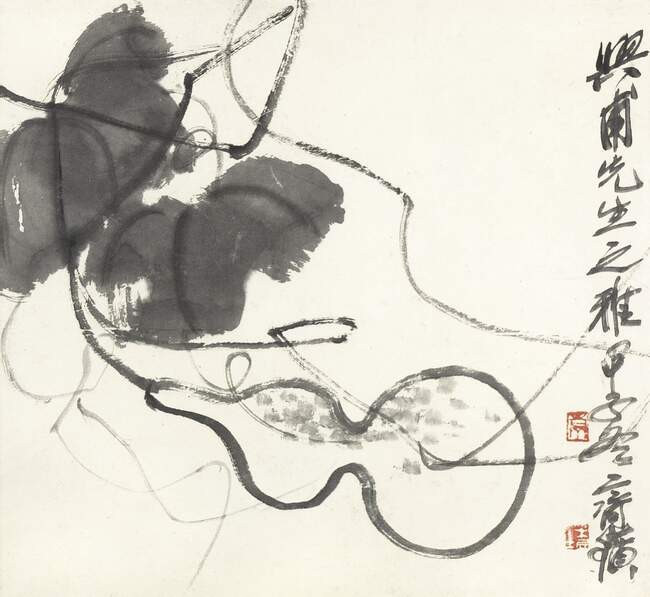 興甫先生之雅甲子齊璜